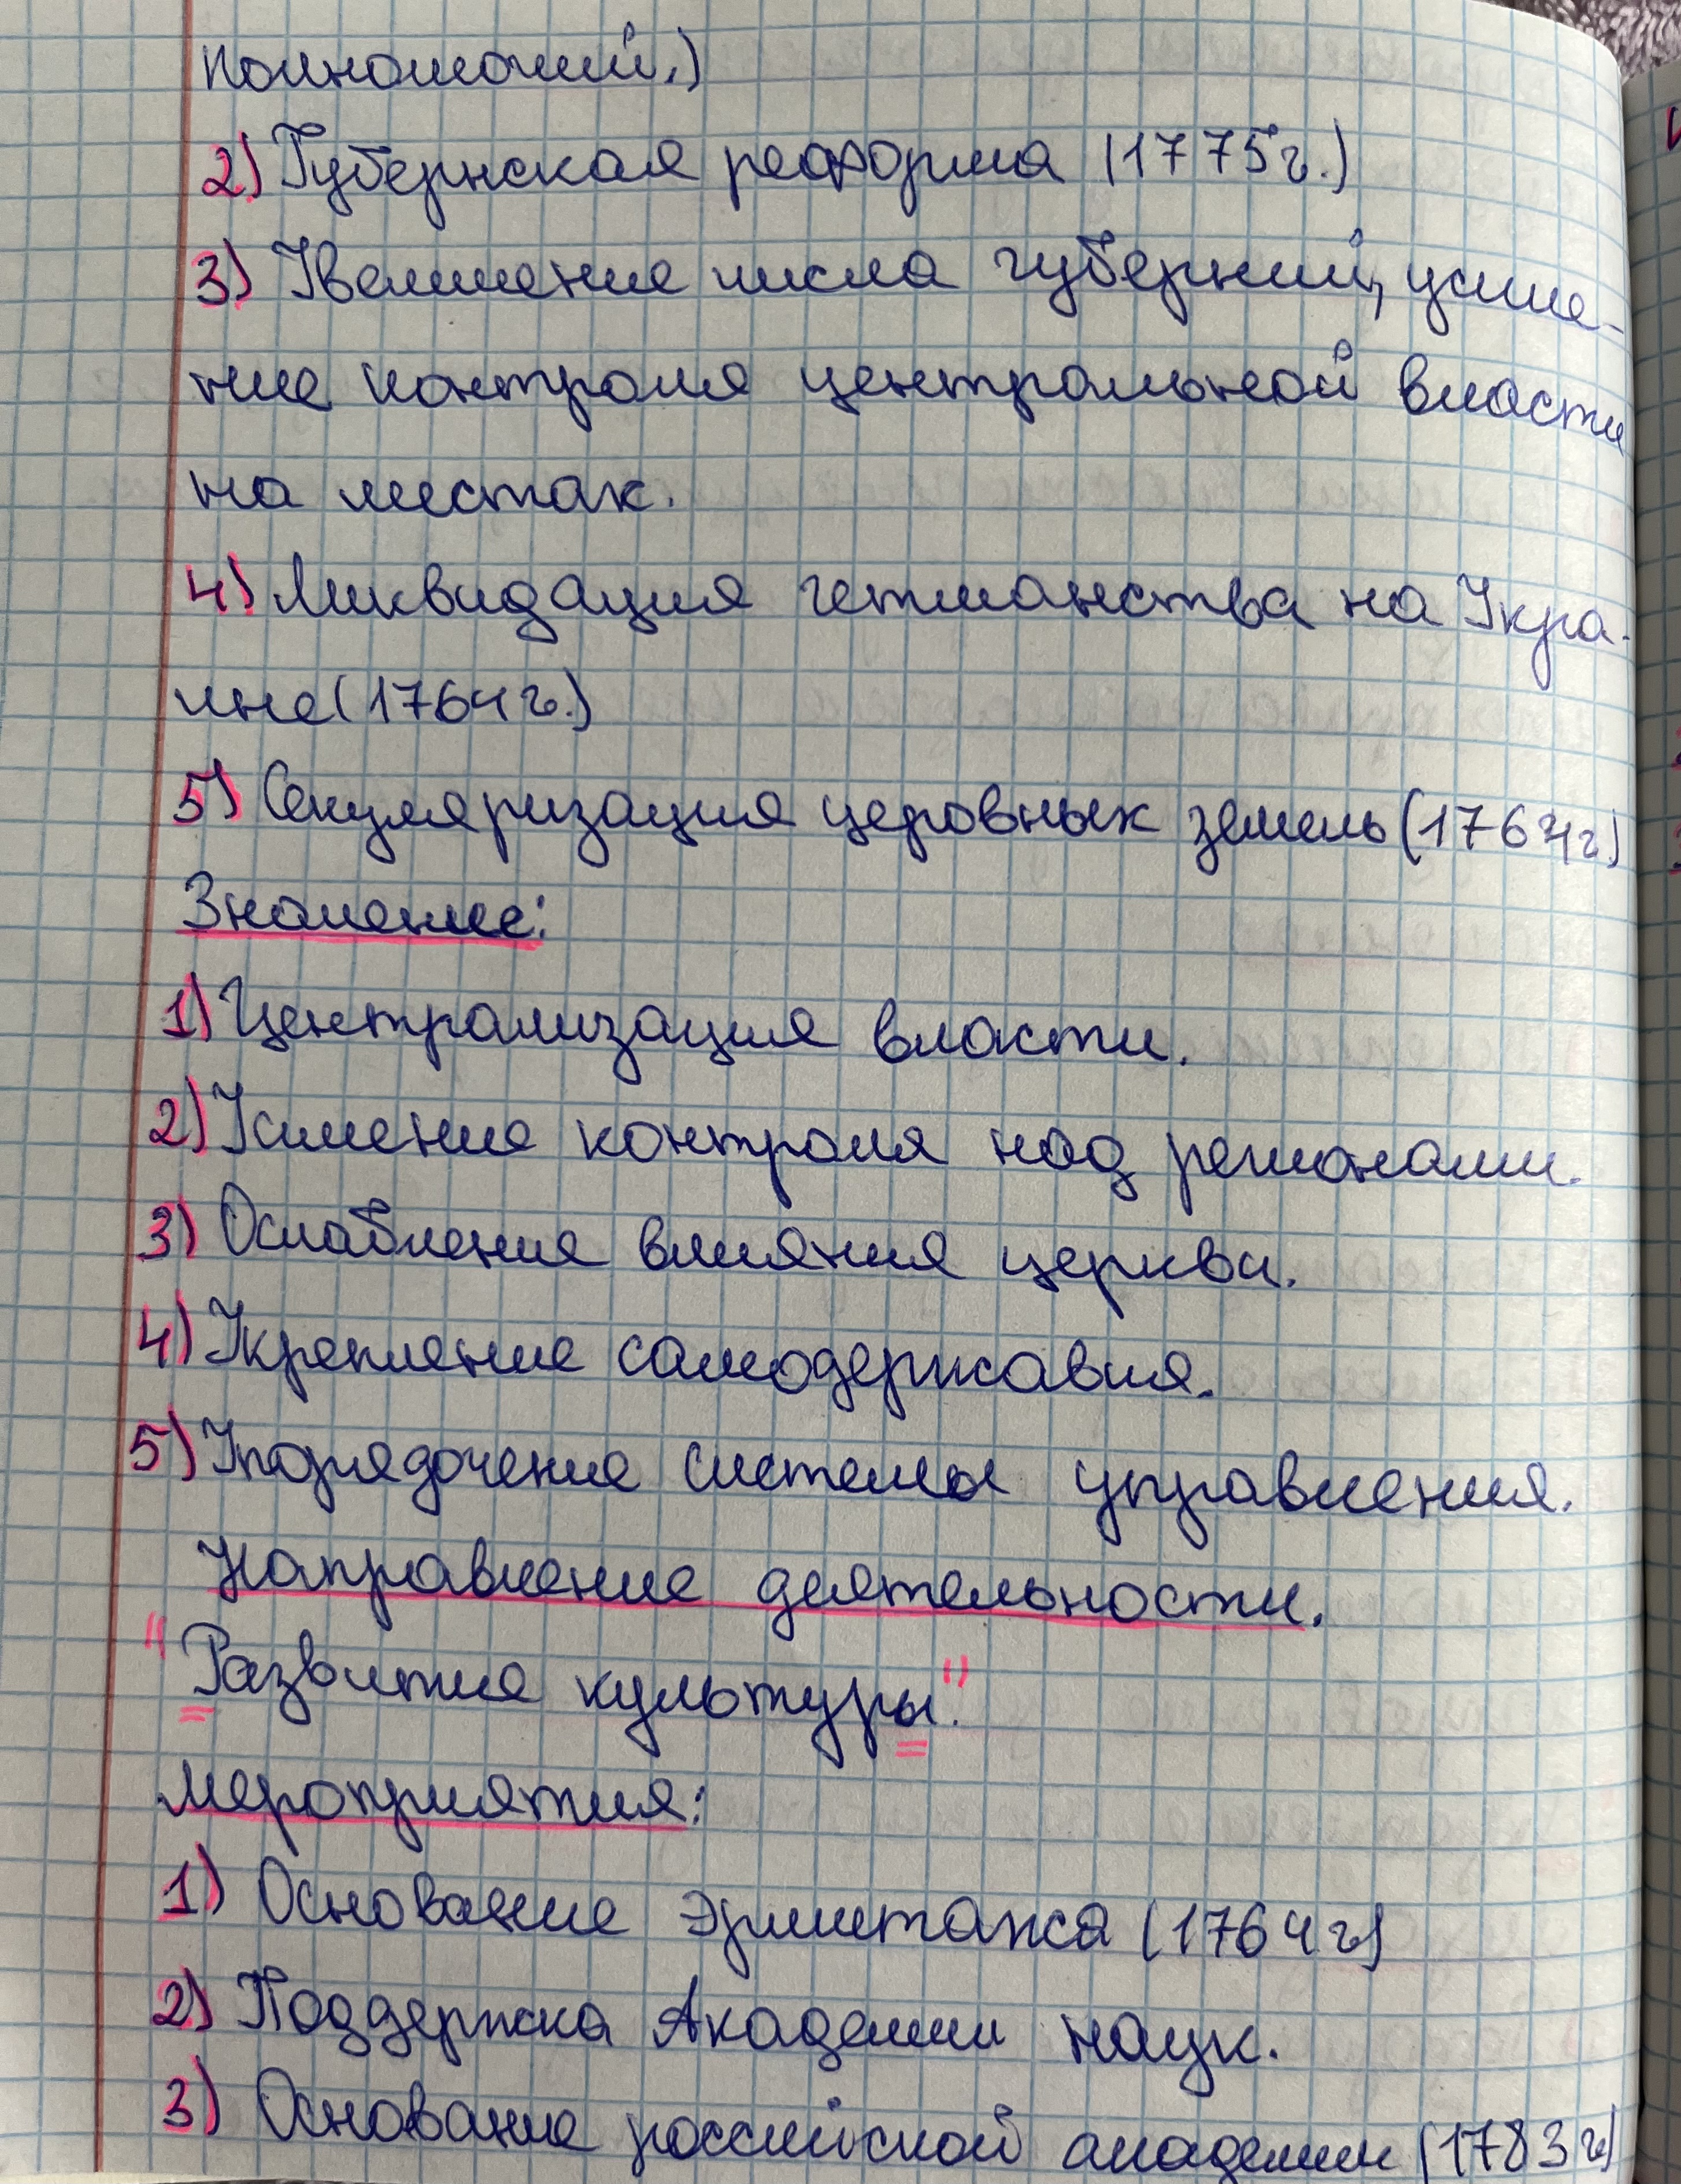 полномочий.)
2) Губернская реформа (1775г.)
3) Увеличение числа губерний, усиле-
ние контроля центральной власти
на местах.
4) Ликвидация гетманства на Укра-
ине (1764г.)
5) Секуляризация церовных земель (1764г)
Значение:
1) Централизация власти.
2) Усиление контроля над регионами.
3) Ослабление влияния церкви.
4) Укрепление самодержавия.
5) Упорядочение системы управления.
Направление деятельности.
"Развитие культуры."
Мероприятия:
1) Основание Эрмитажа (1764г)
2) Поддержка Академии наук.
3) Основание российской академии (1783г)